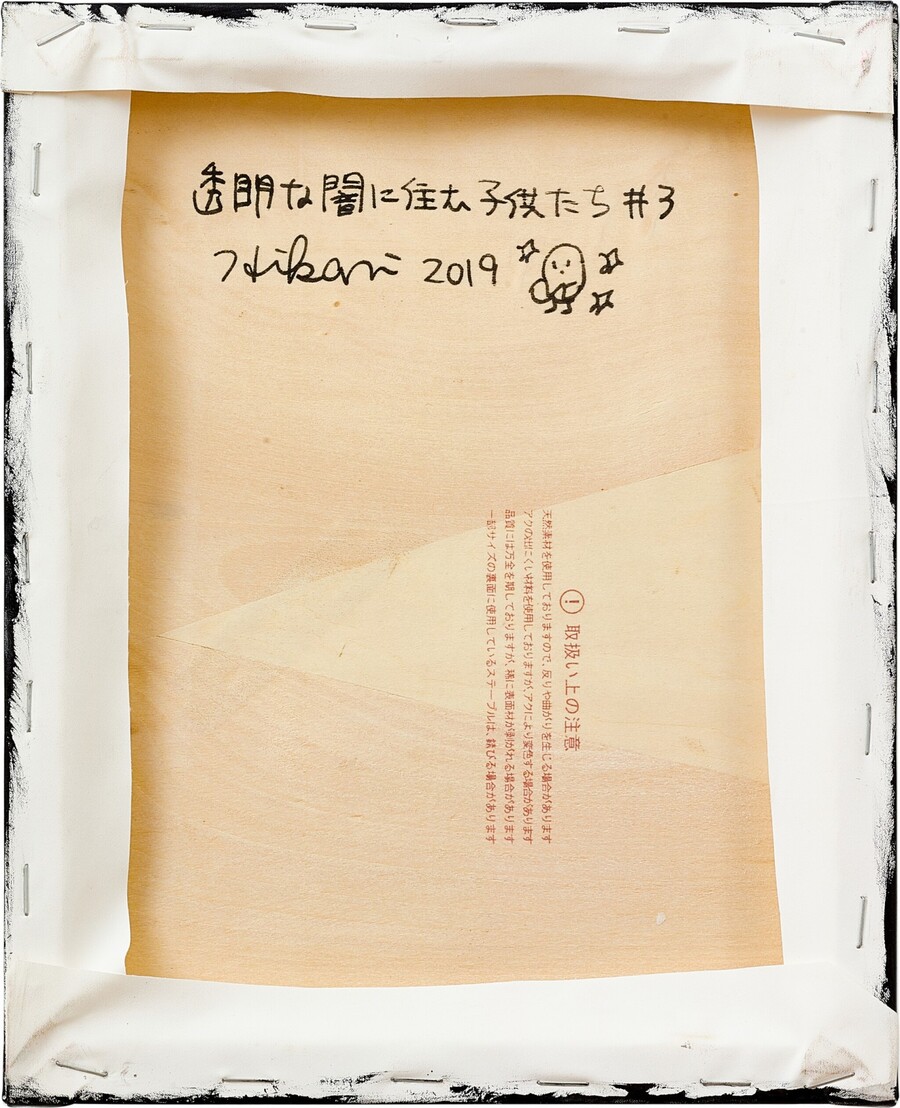 透明な闇に住む子供たち #3
Hikari 2019
! 取扱い上の注意
天然素材を使用しておりますので、反りや曲がりを生じる場合があります
アクの出にくい材料を使用しておりますが、アクにより変色する場合があります
品質には万全を期しておりますが、稀に表面材が剥がれる場合があります
一部サイズの裏面に使用しているステープルは、錆びる場合があります